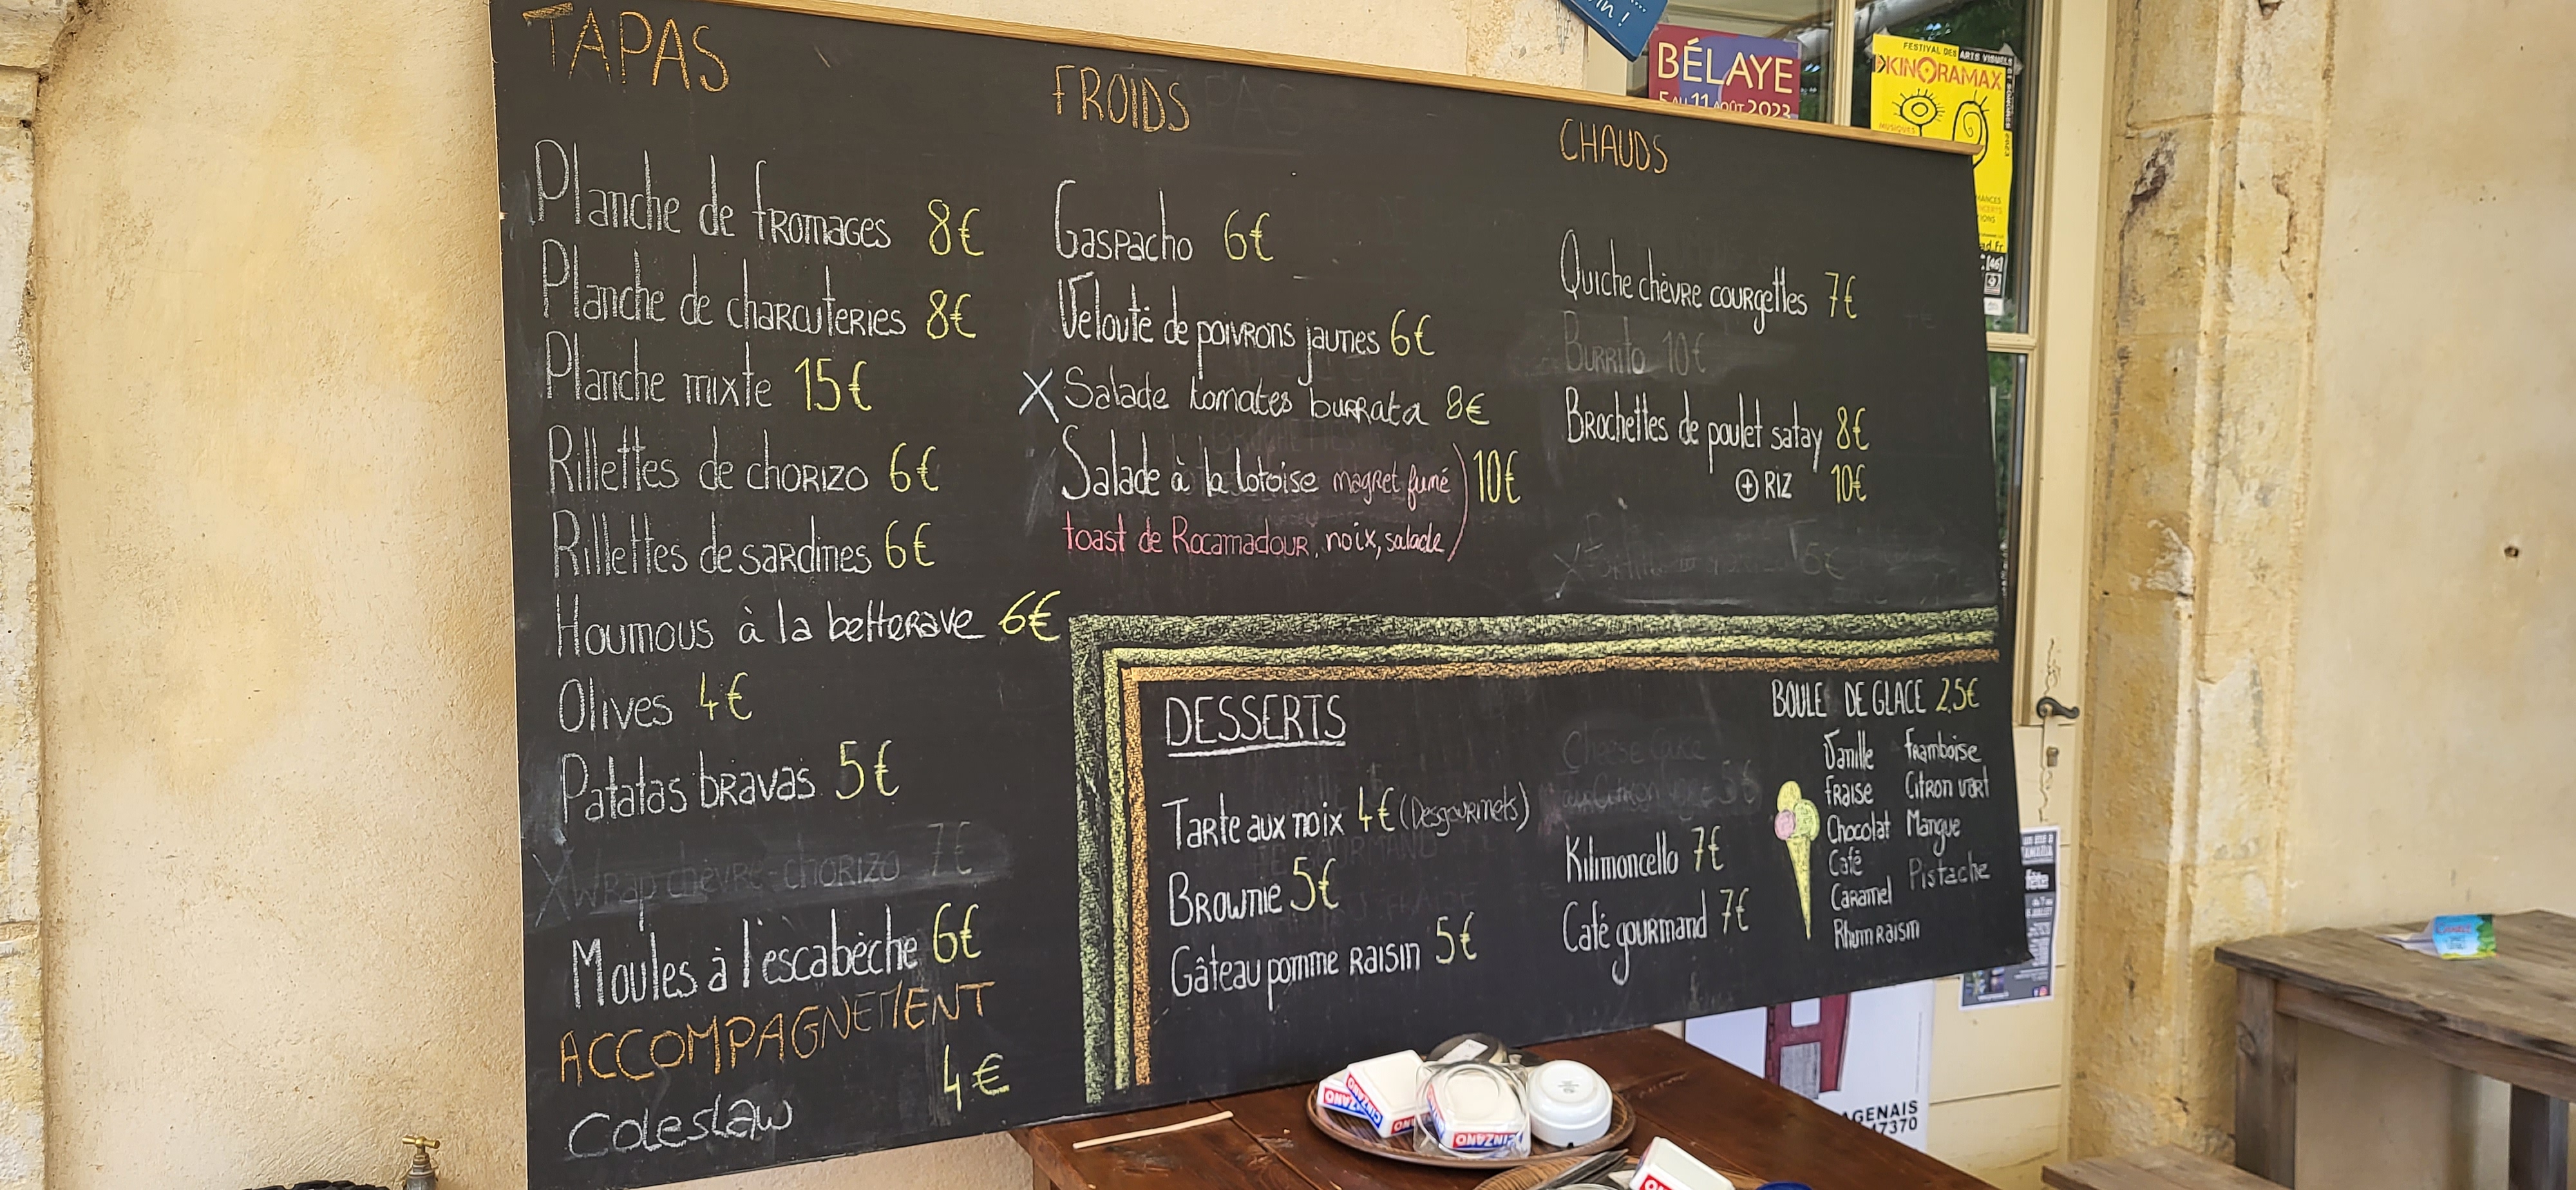 TAPAS
Planche de fromages 8€
Planche de charcuteries 8€
Planche mixte 15€
Rillettes de chorizo 6€
Rillettes de sardines 6€
Houmous à la betterave 6€
Olives 4€
Patatas bravas 5€
X Wrap chèvre-chorizo 7€
Moules à l'escabèche 6€
ACCOMPAGNEMENT
4€
Coleslaw
FROIDS
Gaspacho 6€
Velouté de poivrons jaunes 6€
X Salade tomates burrata 8€
Salade à la lotoise magret fumé 10€
toast de Rocamadour, noix, salade)
CHAUDS
Quiche chèvre courgettes 7€
Burrito 10€
Brochettes de poulet satay 8€
+ RIZ 10€
X 5€
DESSERTS
Tarte aux noix 4€ (Desgourmets)
Brownie 5€
Gâteau pomme raisin 5€
Cheese cake
citron 5€
Kilimoncello 7€
Café gourmand 7€
BOULE DE GLACE 2,5€
Vanille
Fraise
Chocolat
Café
Caramel
Rhum raisin
Framboise
Citron vert
Mangue
Pistache
BÉLAYE
5 AU 11 AOÛT 2023
FESTIVAL DES ARTS VISUELS ET SONORES 2023
KINORAMAX
MUSIQUES
ad.fr
[46]
fête
AGENAIS
47370
CINZANO
CINZANO
CINZANO